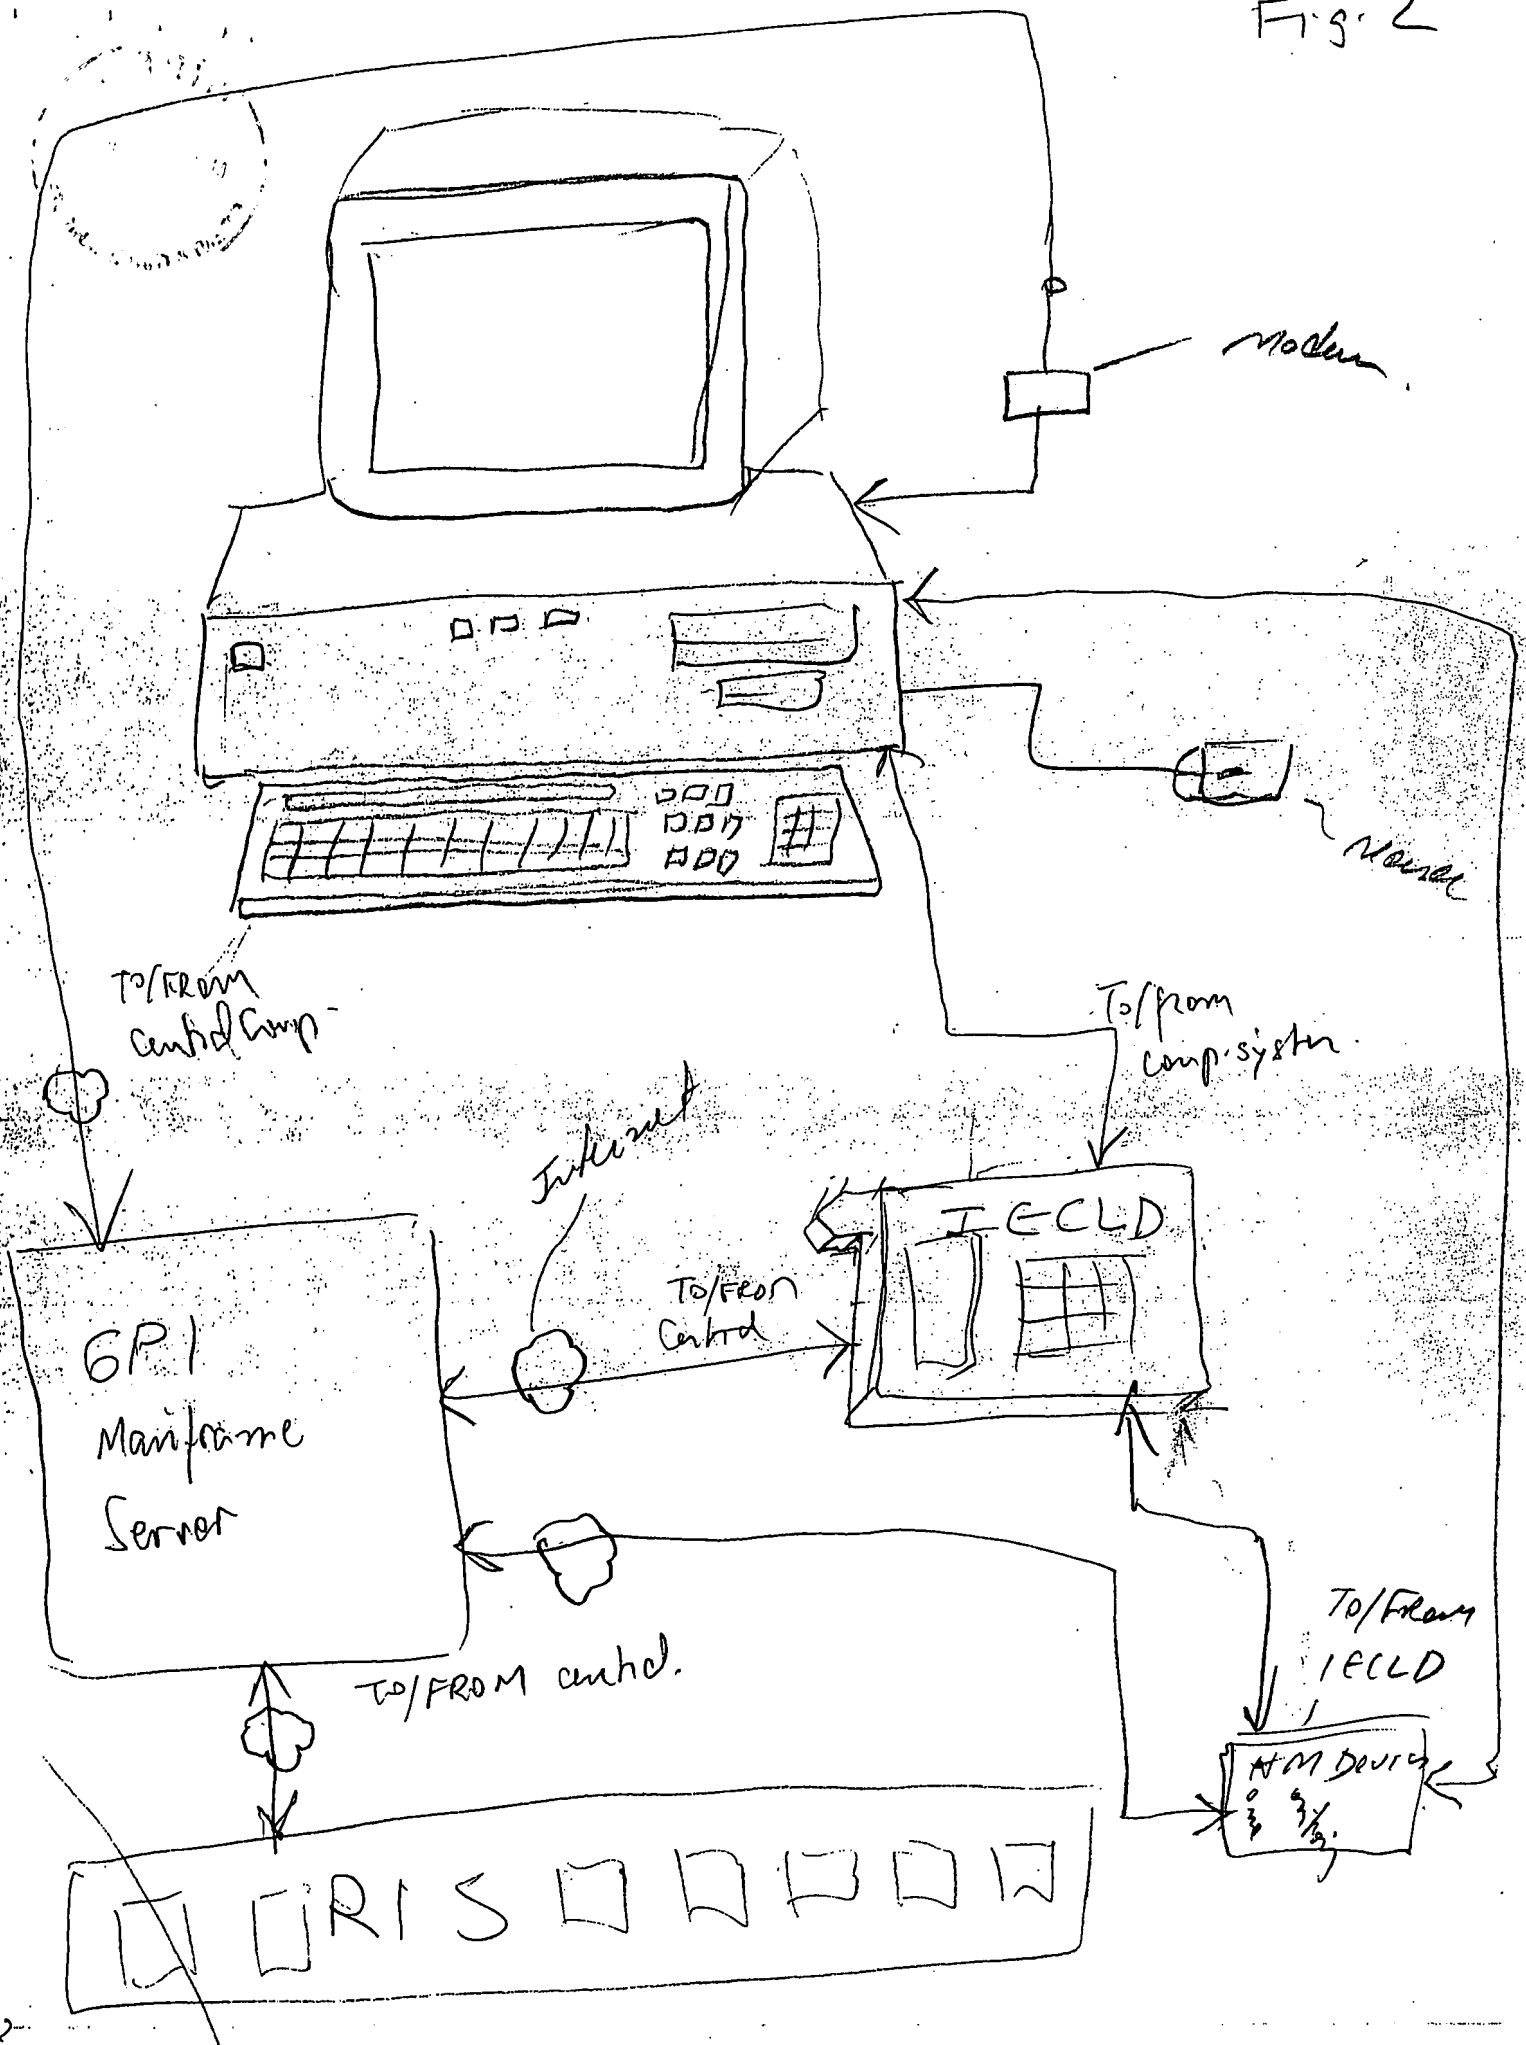 Fig. 2
Modem
Mouse
TO/FROM
Central Comp.
To/from
comp. system.
Internet
IECLD
TO/FROM
Central
GPI
Mainframe
Server
TO/FROM
IECLD
TO/FROM central.
NM Device
RIS